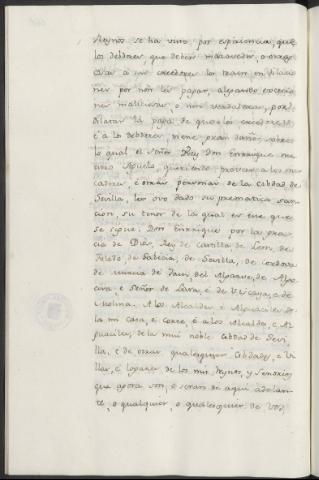 Reynos se ha visto por espiriencia, que
los debdores, que deben maravedis, o otras
cosas á sus creedores los traen en dilacio
nes por non les pagar, alegando excecio
nes maliciosas, o non verdaderas, por
alargar la paga de que á los creedores
é á los debdores viene gran daño, sobre
lo qual el señor Rey Don Enrrique
mi Aguelo, queriendo proveer á los mer
cadores, é otras personas de la Cibdad de
Sevilla, les ovo dado su prematica san
cion, su tenor de la qual es este que
se sigue. Don Enrrique por la gra
cia de Dios, Rey de Castilla de Leon, de
Toledo de Galicia, de Sevilla, de Cordova
de Murcia de Jaen del Algarve, de Alge
cira é Señor de Lara, é de Vizcaya, é de
Molina. A los Alcaldes, é Alguaciles de
la mi casa, é corte, é a los Alcaldes, é Al
guaciles, de la mui noble Cibdad de Sevi
lla, é de otras qualesquier Cibdades, e Vi
llas, é logares de los mis Reynos, y Señorios
que agora son, o seran de aqui adelan
te, o qualquier, o qualesquier de vos